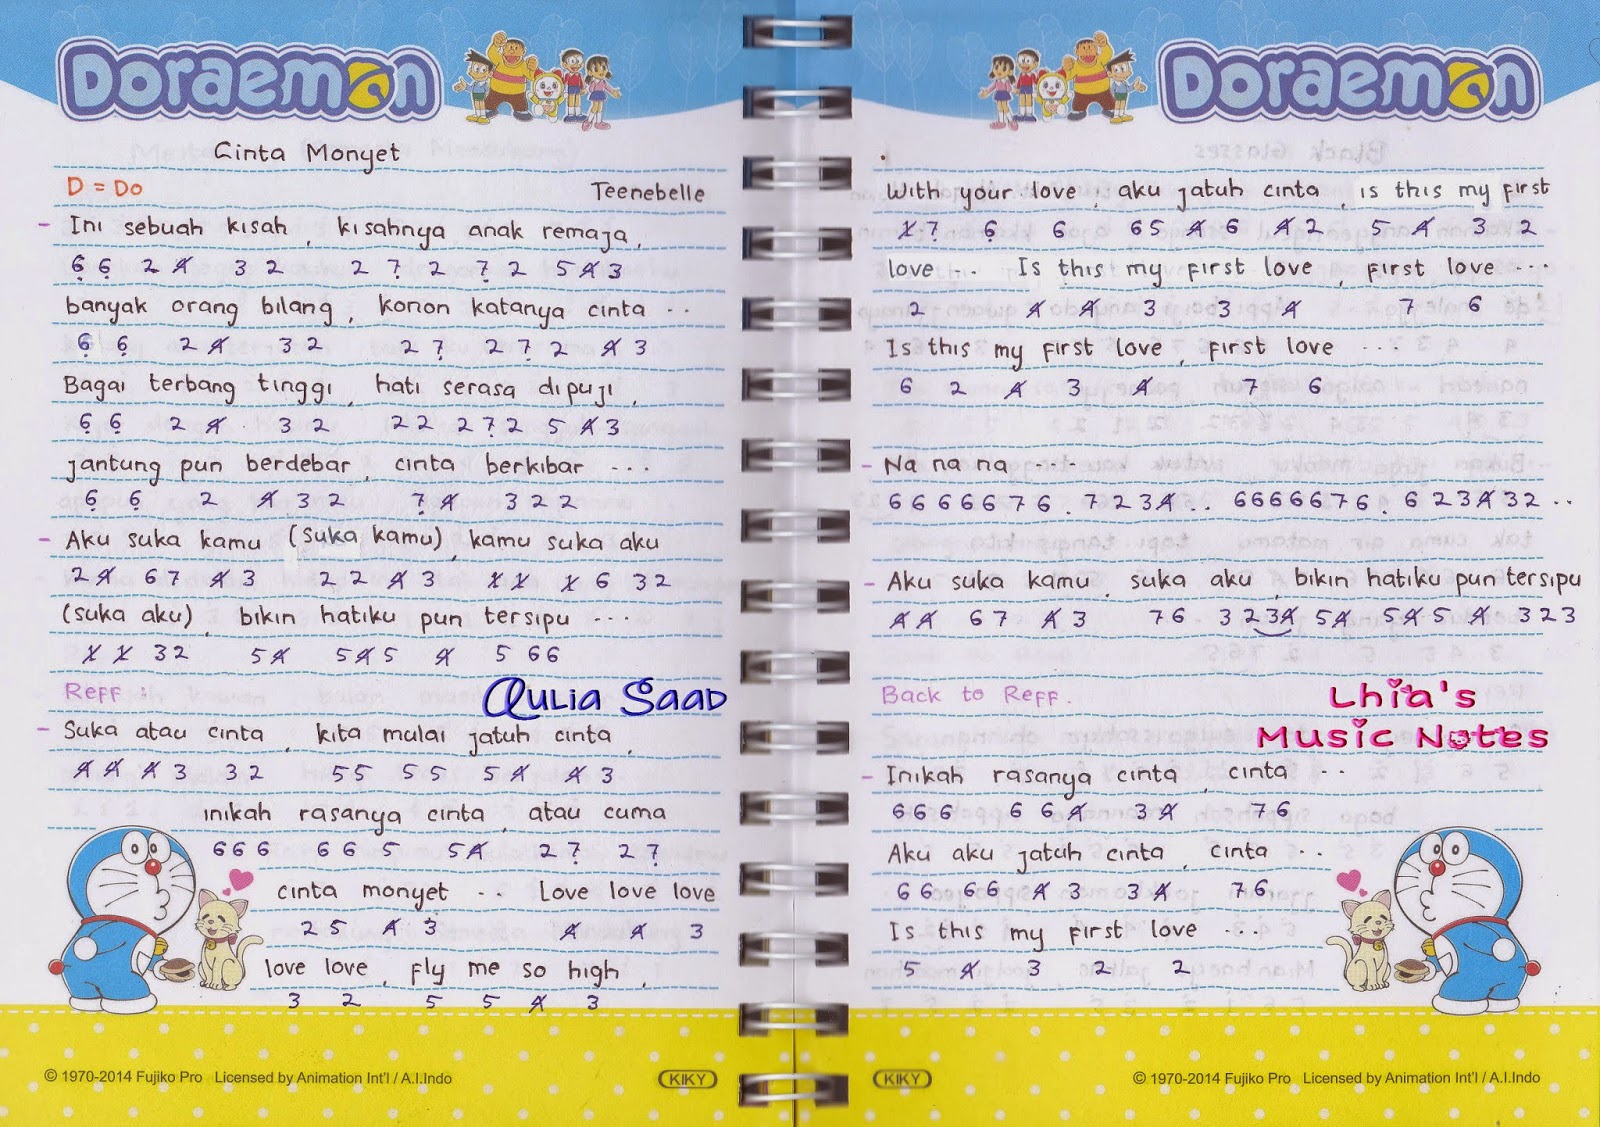 Doraemon
Cinta Monyet
D = Do
Teenebelle
- Ini sebuah kisah, kisahnya anak remaja,
6̣ 6̣ 2 4̸ 3 2 2 7̣ 2 7̣ 2 5 4̸ 3
banyak orang bilang, konon katanya cinta ..
6̣ 6̣ 2 4̸ 3 2 2 7̣ 2 7̣ 2 4̸ 3
Bagai terbang tinggi, hati serasa dipuji,
6̣ 6̣ 2 4̸ . 3 2 2 2 2 7̣ 2 5 4̸ 3
jantung pun berdebar, cinta berkibar ...
6̣ 6̣ 2 4̸ 3 2 7̣ 4̸ 3 2 2
- Aku suka kamu (suka kamu), kamu suka aku
2 4̸ 6 7 4̸ 3 2 2 4̸ 3 1̸ 1̸ 1̸ 6 3 2
(suka aku), bikin hatiku pun tersipu ...
1̸ 1̸ 3 2 5 4̸ 5 4̸ 5 4̸ 5 6 6
Reff :
Aulia Saad
- Suka atau cinta, kita mulai jatuh cinta,
4̸ 4̸ 4̸ 3 3 2 5 5 5 5 5 4̸ 4̸ 3
inikah rasanya cinta, atau cuma
6 6 6 6 6 5 5 4̸ 2 7̣ 2 7̣
cinta monyet .. Love love love
2 5 4̸ 3 4̸ 4̸ 3
love love, fly me so high,
3 2 5 5 4̸ 3
© 1970-2014 Fujiko Pro Licensed by Animation Int'l / A.I.Indo
KIKY
Doraemon
With your love, aku jatuh cinta, is this my first
1̸ 7̣ 6̣ 6 6 5 4̸ 6 4̸ 2 5 4̸ 3 2
love ... Is this my first love, first love ...
2 4̸ 4̸ 3 3 4̸ 7 6
Is this my first love, first love ...
6 2 4̸ 3 4̸ 7 6
- Na na na ...
6 6 6 6 6 7 6 . 7 2 3 4̸ .. 6 6 6 6 6 7 6 . 6 2 3 4̸ 3 2 ..
- Aku suka kamu, suka aku, bikin hatiku pun tersipu
4̸ 4̸ 6 7 4̸ 3 7 6 3 2 3 4̸ 5 4̸ 5 4̸ 5 4̸ 3 2 3
Back to Reff.
Lhia's
Music Notes
- Inikah rasanya cinta, cinta ..
6 6 6 6 6 4̸ 3 4̸ 7 6
Aku aku jatuh cinta, cinta ..
6 6 6 6 4̸ 3 3 4̸ 7 6
Is this my first love ...
5 4̸ 3 2 2
KIKY
© 1970-2014 Fujiko Pro Licensed by Animation Int'l / A.I.Indo